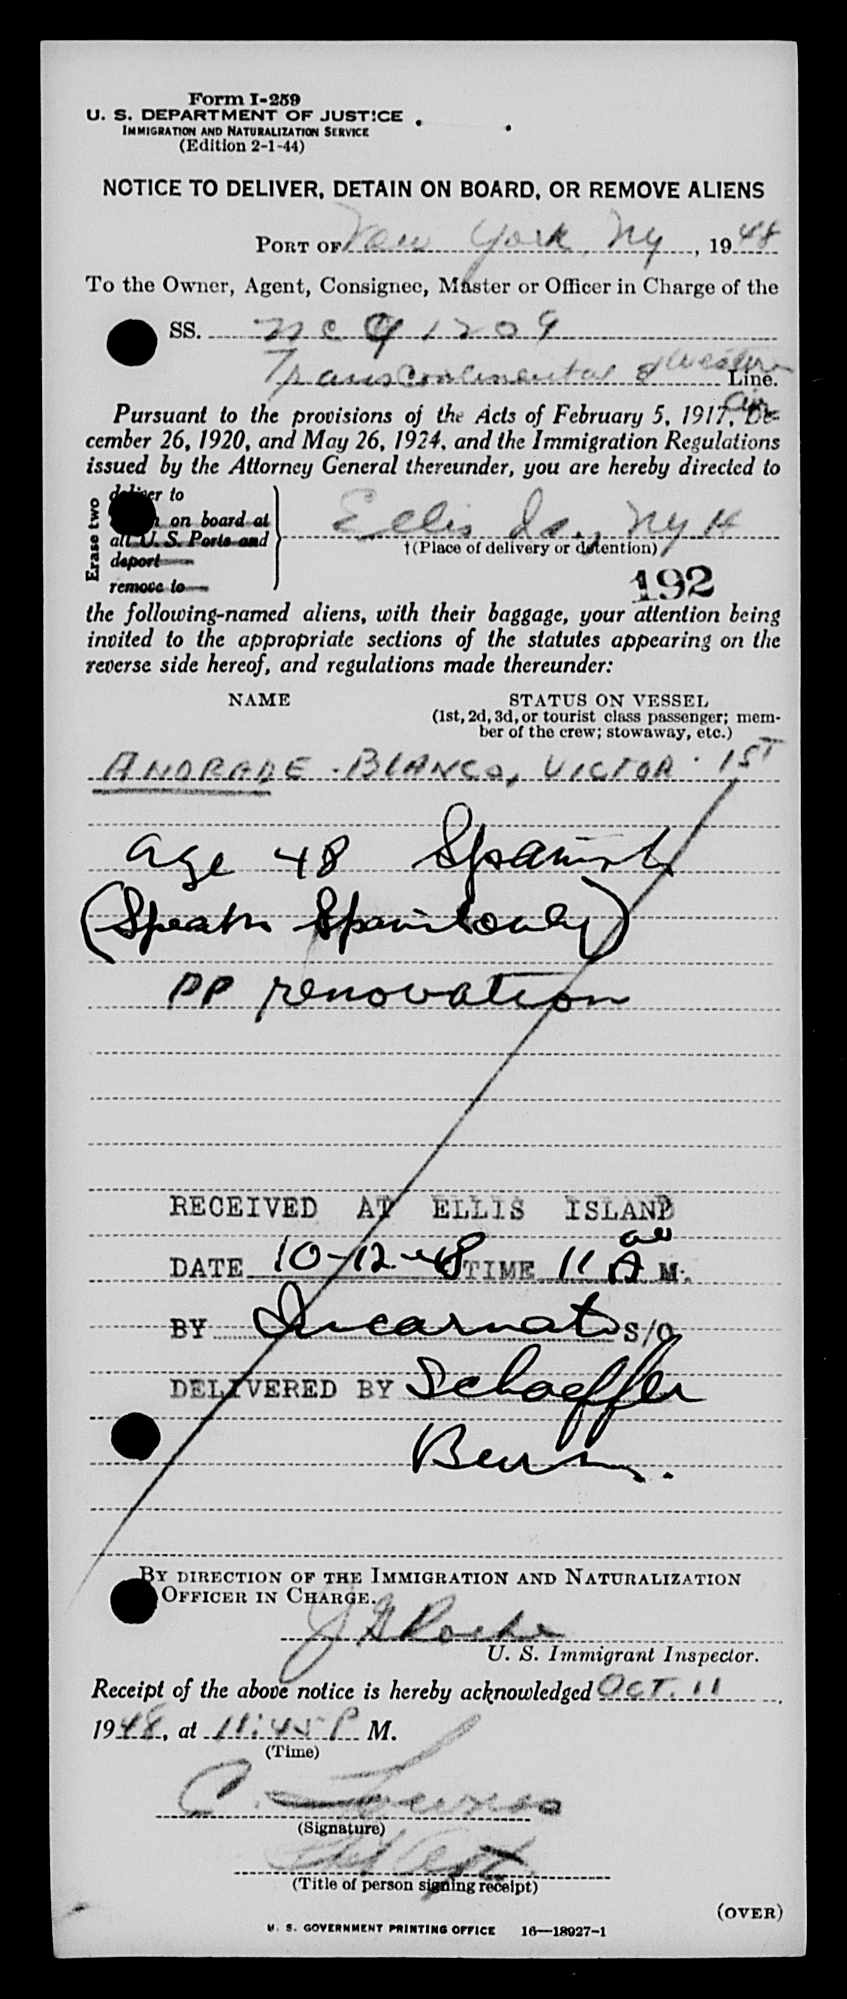 Form I-259
U. S. DEPARTMENT OF JUSTICE
IMMIGRATION AND NATURALIZATION SERVICE
(Edition 2-1-44)
NOTICE TO DELIVER, DETAIN ON BOARD, OR REMOVE ALIENS
PORT OF New York, NY, 1948
To the Owner, Agent, Consignee, Master or Officer in Charge of the
SS. NC 91209
Transcontinental & Western Line.
Air
Pursuant to the provisions of the Acts of February 5, 1917, De-
cember 26, 1920, and May 26, 1924, and the Immigration Regulations
issued by the Attorney General thereunder, you are hereby directed to
Erase two
deliver to
on board at
all U. S. Ports and
deport
remove to
Ellis Is., NY H
†(Place of delivery or detention)
192
the following-named aliens, with their baggage, your attention being
invited to the appropriate sections of the statutes appearing on the
reverse side hereof, and regulations made thereunder:
NAME STATUS ON VESSEL
(1st, 2d, 3d, or tourist class passenger; mem-
ber of the crew; stowaway, etc.)
ANDRADE-BLANCO, VICTOR 1ST
age 48 Spanish
(Speaks Spanish only)
PP renovation
RECEIVED AT ELLIS ISLAND
DATE 10-12-48 TIME 11 A M.
BY Incarnato S/O
DELIVERED BY Schaeffer
BY DIRECTION OF THE IMMIGRATION AND NATURALIZATION
OFFICER IN CHARGE.
J Roche
U. S. Immigrant Inspector.
Receipt of the above notice is hereby acknowledged OCT. 11
1948, at 11:45 P M.
(Time)
C.
(Signature)
(Title of person signing receipt)
(OVER)
U. S. GOVERNMENT PRINTING OFFICE 16—18927-1